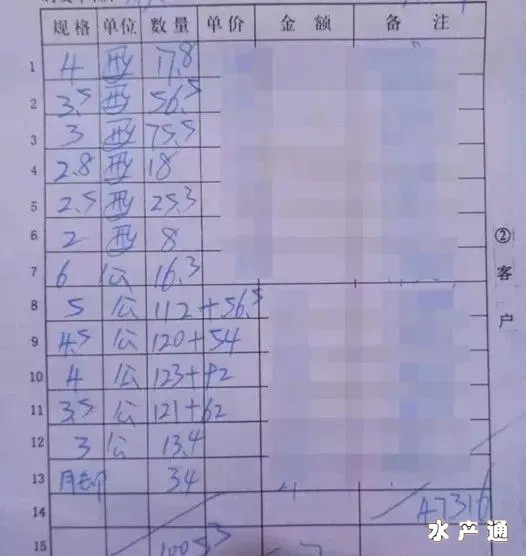 规格 单位 数量 单价 金额 备注
1 4 母 17.8
2 3.5 母 56.5
3 3 母 75.5
4 2.8 母 18
5 2.5 母 25.3
6 2 母 8
7 6 公 16.3
8 5 公 112+56.5
9 4.5 公 120+54
10 4 公 123+92
11 3.5 公 121+62
12 3 公 13.4
13 34
14 47316
15
②客户
水产通